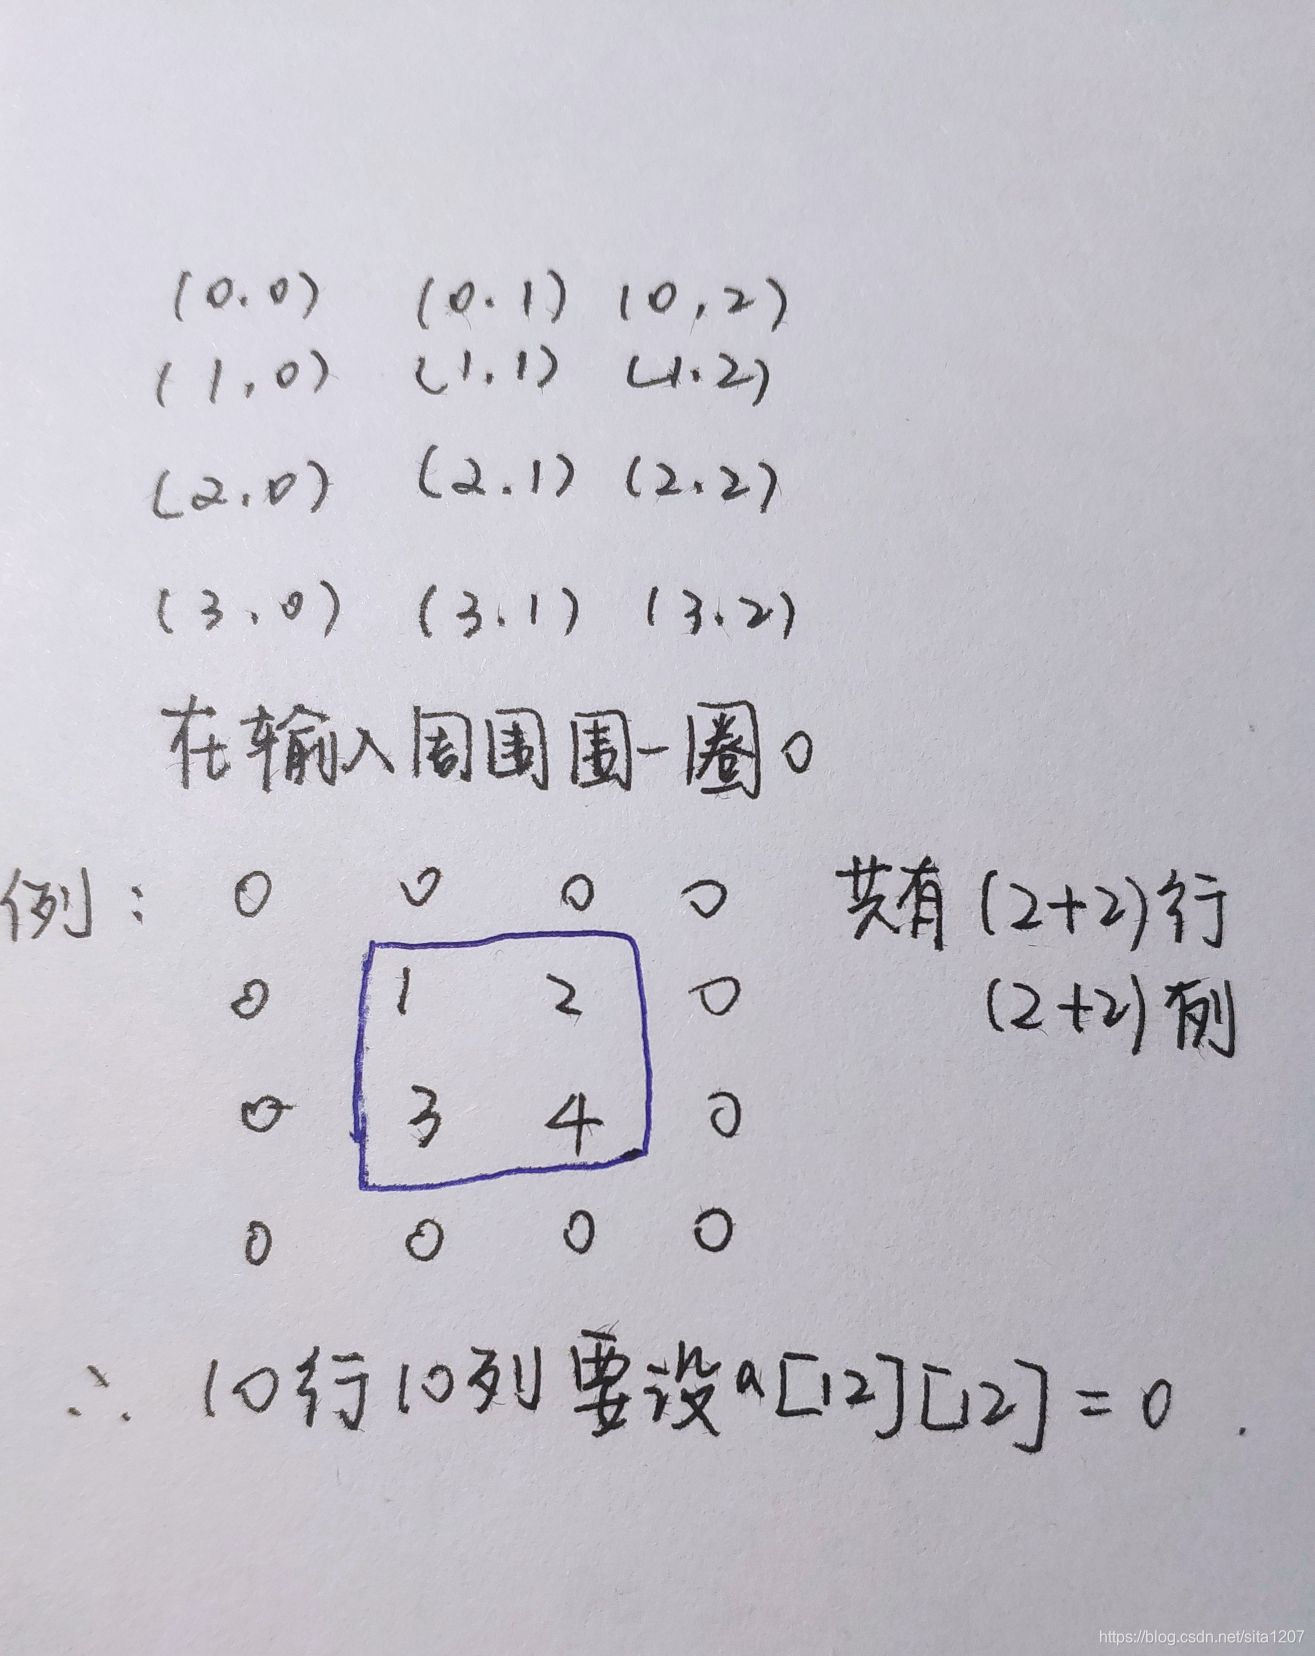 (0.0) (0.1) (0,2)
(1,0) (1.1) (1.2)
(2.0) (2.1) (2.2)
(3.0) (3.1) (3.2)
在输入周围围一圈0
例: 0 0 0 0 共有(2+2)行
0 1 2 0 (2+2)列
0 3 4 0
0 0 0 0
∴ 10行10列要设a[12][12]=0.
https://blog.csdn.net/sita1207